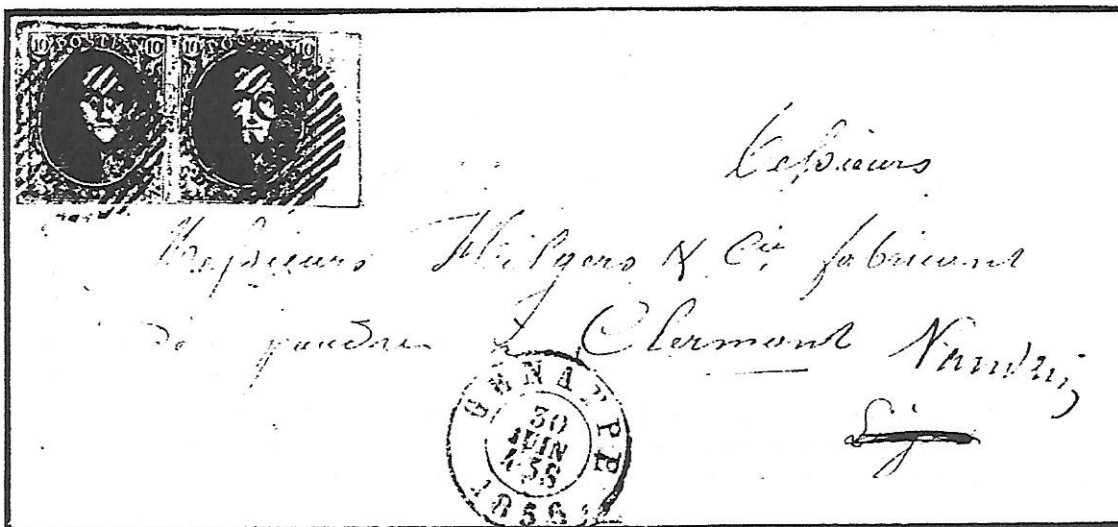 10 POSTES 10 10 POSTES 10
Messieurs
Messieurs Hilgers & Cie fabricant
de poudre à Clermont Nandrin
Liège
GENAPPE
30
JUIN
1856